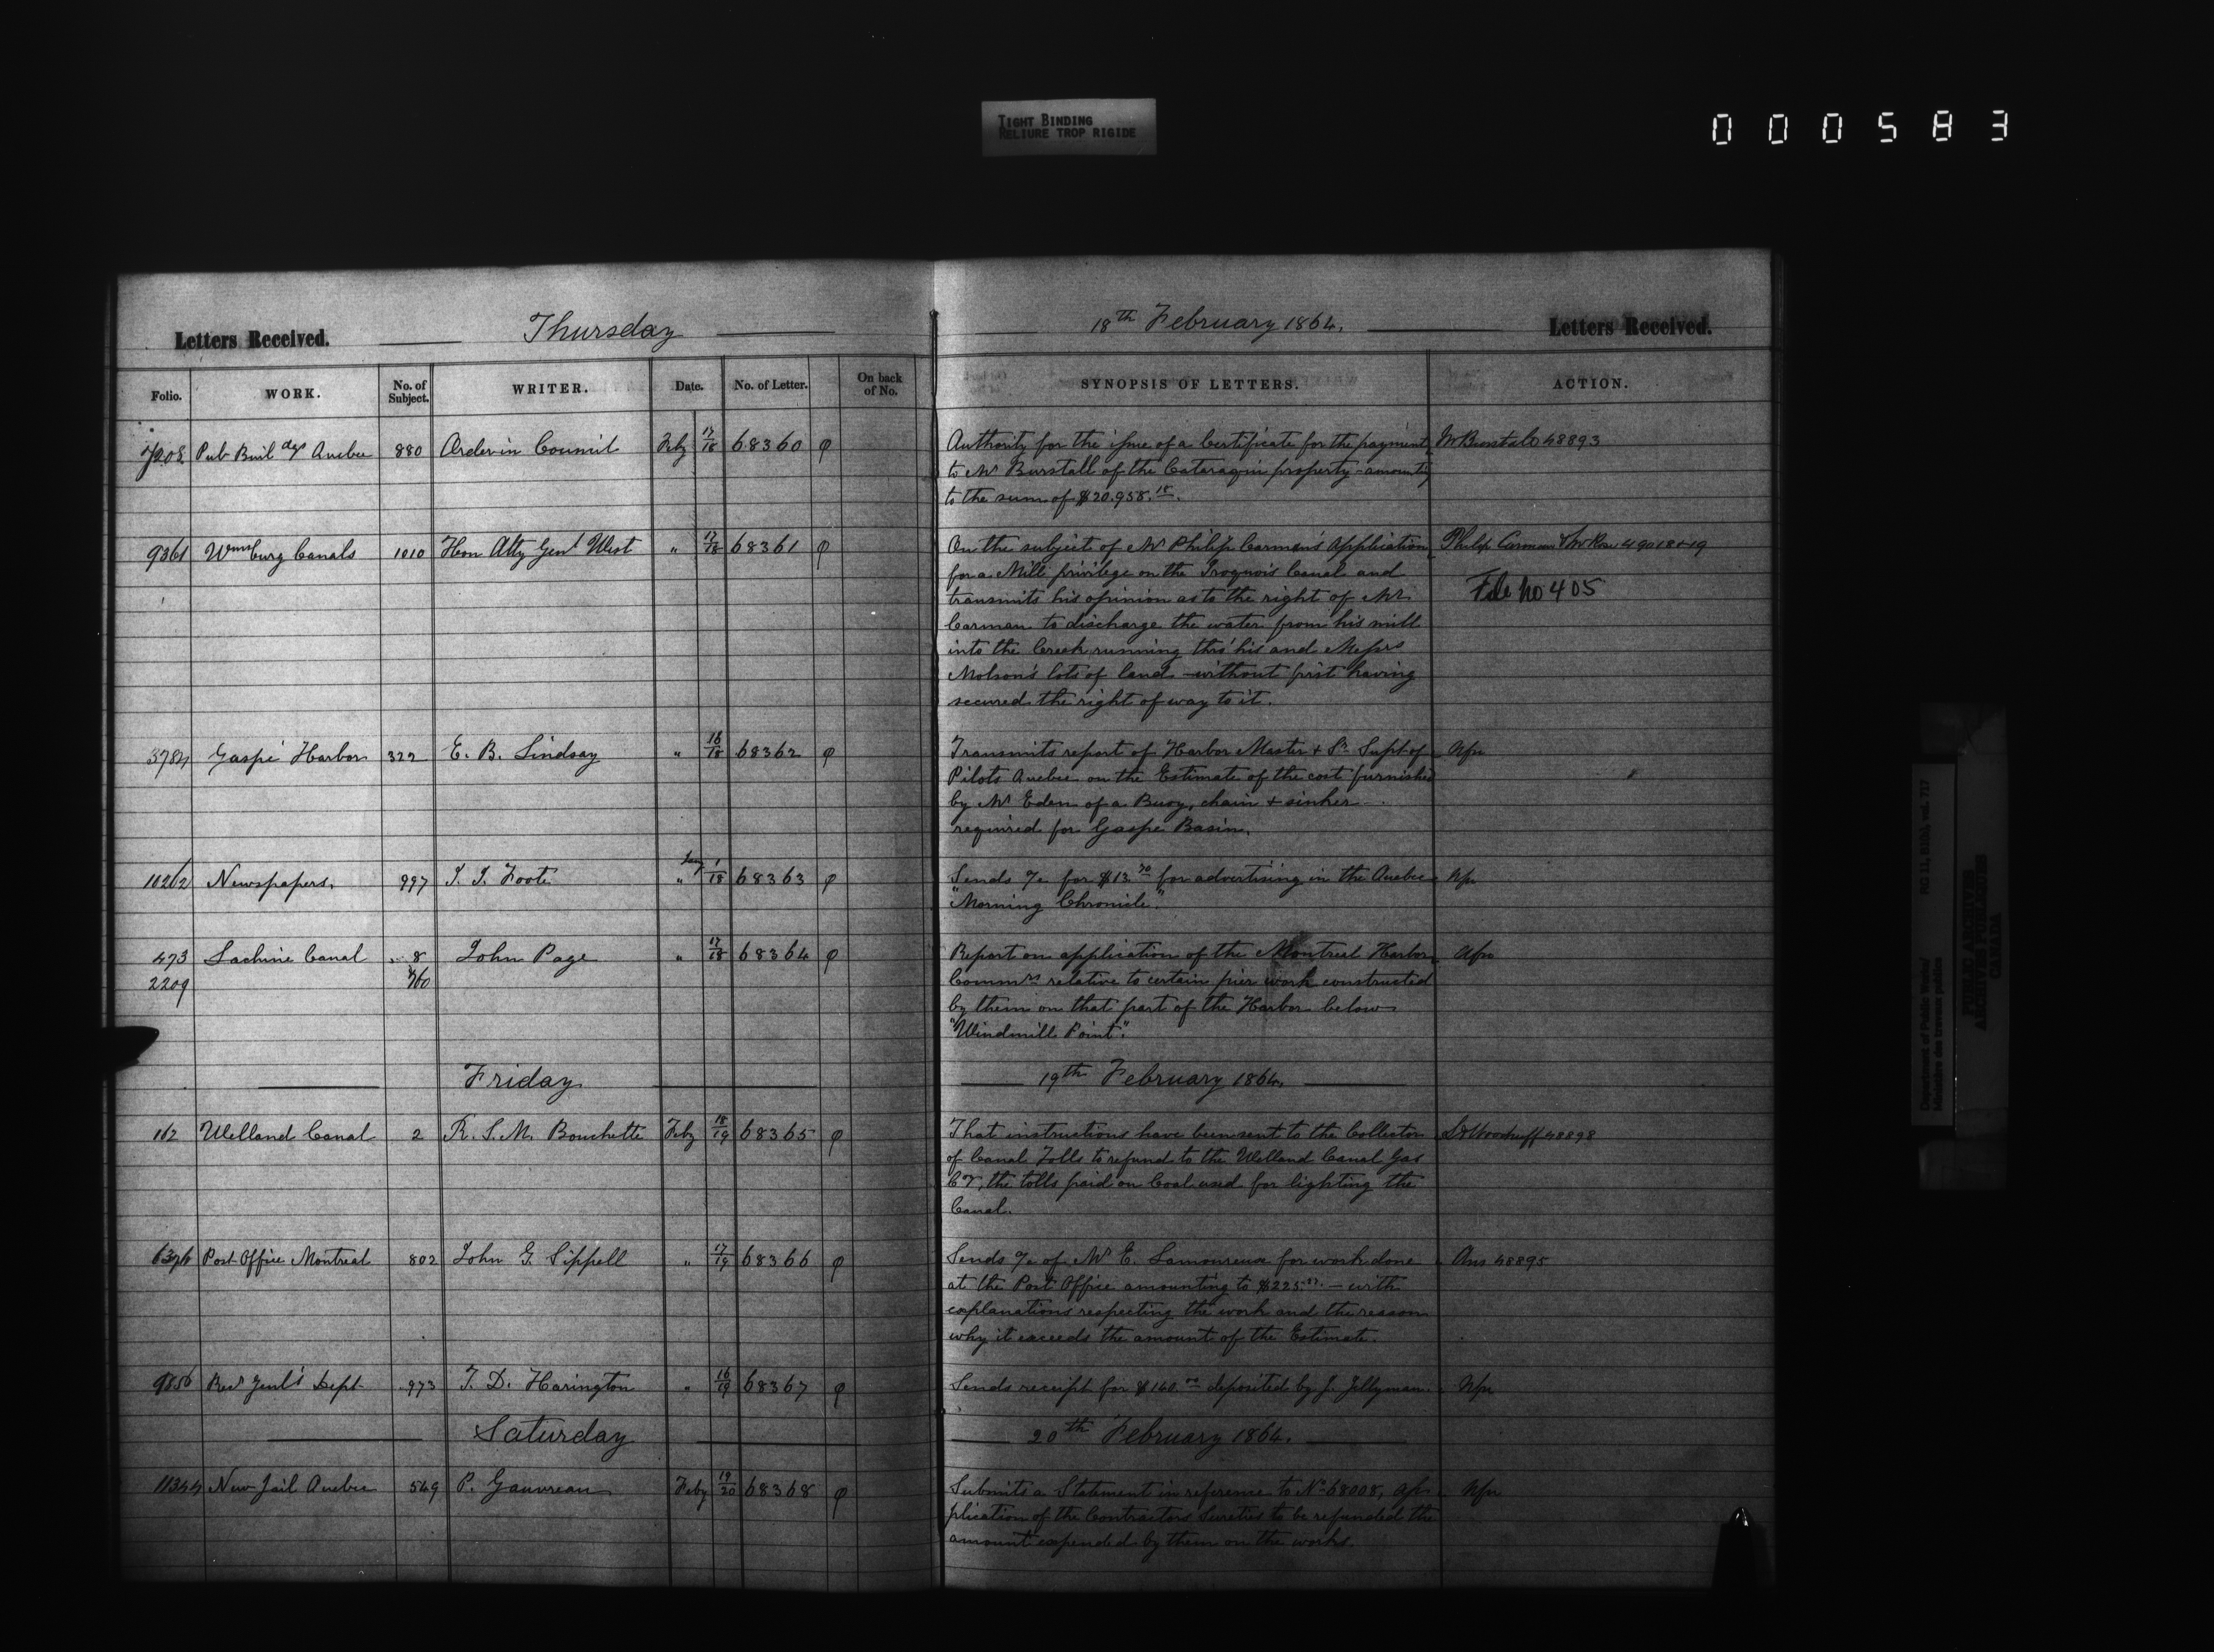 TIGHT BINDING
RELIURE TROP RIGIDE
000583
Letters Received. Thursday 18th February 1864. Letters Received.
Folio. WORK. No. of Subject. WRITER. Date. No. of Letter. On back of No. SYNOPSIS OF LETTERS. ACTION.
7208 Pub Buildgs Quebec 880 Order in Council Feby 17/18 68360 φ Authority for the issue of a Certificate for the payment W Burstall 48893
to Mr Burstall of the Cataraqui property - amountg
to the sum of $20.958.18.
9361 Wmsburg Canals 1010 Hon Atty Genl West " 17/18 68361 φ On the subject of Mr Philip Carman's Application Philip Carman & Mr Rose 49018+19
for a Mill privilege on the Iroquois Canal and File No 405
transmits his opinion as to the right of Mr
Carman to discharge the water from his mill
into the Creek running thro' his and Messrs
Molson's lots of land - without first having
secured the right of way to it.
3784 Gaspé Harbor 322 E. B. Lindsay " 16/18 68362 φ Transmits report of Harbor Master & Sr Supt of Nfn
Pilots Quebec on the Estimate of the cost furnished
by Mr Eden of a Buoy, chain & sinker
required for Gaspé Basin.
10262 Newspapers. 997 S. J. Foote Jany 1/18 68363 φ Sends a/c for $13.70 for advertising in the Quebec Nfn
"Morning Chronicle".
473 Lachine Canal 8 John Page " 17/18 68364 φ Report on application of the Montreal Harbor
2209 Commrs relative to certain pier work constructed
by them on that part of the Harbor below
"Windmill Point".
Friday 19th February 1864.
162 Welland Canal 2 R. S. M. Bouchette Feby 18/19 68365 φ That instructions have been sent to the Collector S D Woodruff 48898
of Canal Tolls to refund to the Welland Canal Gas
Co, the tolls paid on Coal used for lighting the
Canal.
6376 Post Office Montreal 802 John G. Sippell " 17/19 68366 φ Sends a/c of Mr E. Lamoureux for work done Ans 48895
at the Post Office amounting to $225. - with
explanations respecting the work and the reason
why it exceeds the amount of the Estimate.
9856 Recr Genl's Dept 973 T. D. Harington " 16/19 68367 φ Sends receipt for $160.00 deposited by J. Jellyman. Nfn
Saturday 20th February 1864.
11344 New Jail Quebec 549 P. Gauvreau Feby 19/20 68368 φ Submits a Statement in reference to No 68008, ap- Nfn
plication of the Contractors Sureties to be refunded the
amount expended by them on the works.
Department of Public Works/ RG 11, B1(b), vol. 717
Ministère des travaux publics
PUBLIC ARCHIVES
ARCHIVES PUBLIQUES
CANADA